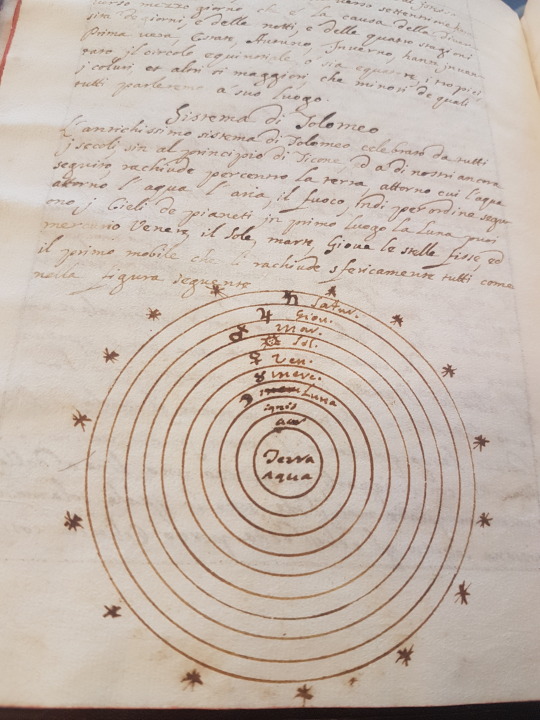 mezzo giorno che è la causa della
di giorni, e delle notti, e delle quatro stagioni
Prima vera Estate, Autuno, Inverno, hann inven
tato il circolo equinotiale o sia equatore, i tropici
j coluri, et altri si maggiori, che minori de quali
tutti parleremo a suo luogo.
Sistema di Tolomeo
L'antichissimo sistema di Tolomeo celebrato da tutti
j secoli sin al principio di Ticone, d a di nostri ancora
seguito, rachiude per centro la terra, attorno cui l'aqua
attorno l'aqua l'aria, il fuoco, Indi per ordine segu
ono j Cieli de pianeti jn primo luogo la Luna puoi
mercurio Venere, il Sole, marte, Giove le stelle fisse, ed
il primo mobile che l rachiude sfericamente tutti come
nella figura seguente
♄ Satur.
♃ Giov.
♂ Mar.
Sol.
♀ Ven.
☿ merc.
Luna
ignis
aer
Terra
Aqua